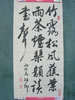 竹露松風蕉
雨茶煙琴韻讀
書聲